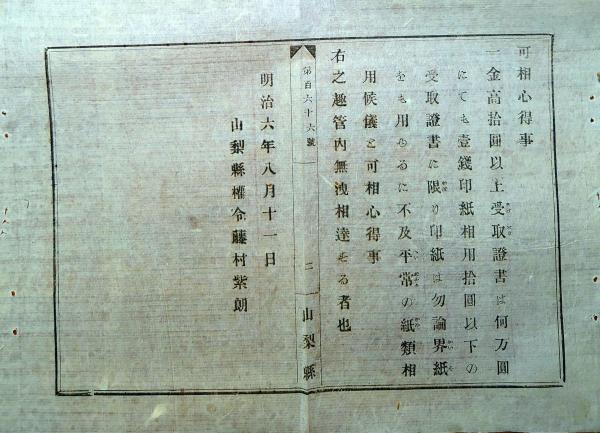 可相心得事
一金高拾圓以上受取證書は何万圓
にても壹錢印紙相用拾圓以下の
受取證書に限り印紙は勿論界紙
をも用ゐるに不及平常の紙類相
用候儀と可相心得事
右之趣管内無洩相達する者也
第百六十六號
二
山梨縣
明治六年八月十一日
山梨縣權令藤村紫朗